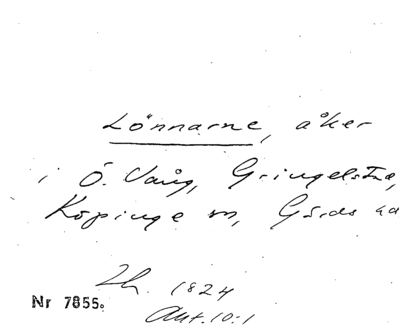 Lönnarne, åker
i Ö. Vång, Gringelstad,
Köpinge sn, Gärds hd
Lh. 1824
Nr 7855.
Akt. 10:1